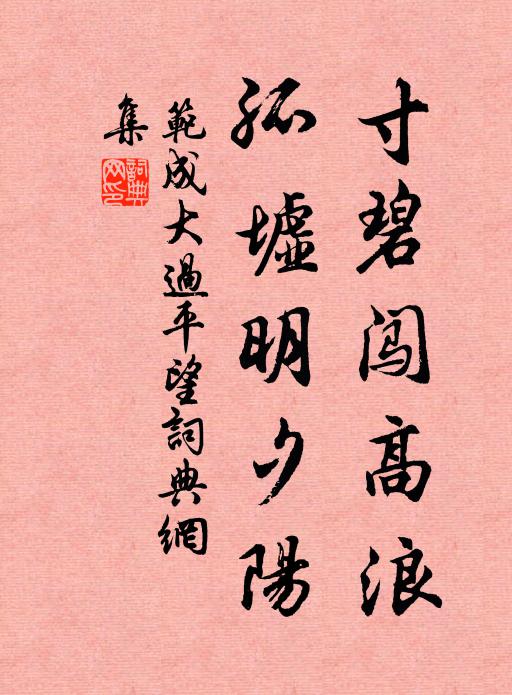 寸碧闯高浪
孤墟明夕陽
範成大過平望詞典網
集
詞典
网印